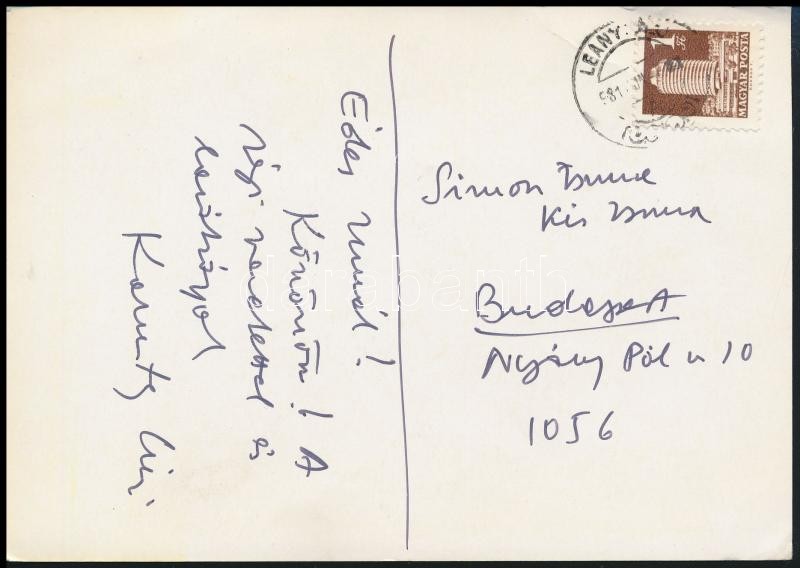 Édes Immár!
Köszönöm! A
régi szeretettel és
barátsággal
Karinthy Cini
LEÁNYFALU
981
1 Ft
MAGYAR POSTA
Simon Imre
Kis Imre
Budapest
Nyáry Pál u 10
1056
darabanth